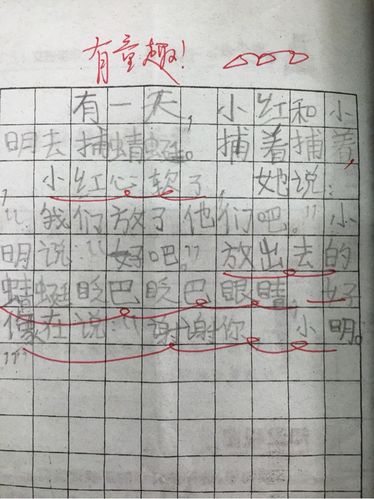 有童趣！
有一天，小红和小
明去捕蜻蜓。捕着捕着，
，小红心软了，她说：
“我们放了他们吧。”小
明说：“好吧。”放出去的
蜻蜓眨巴眨巴眼睛，好
像在说：“谢谢你，小明。
”